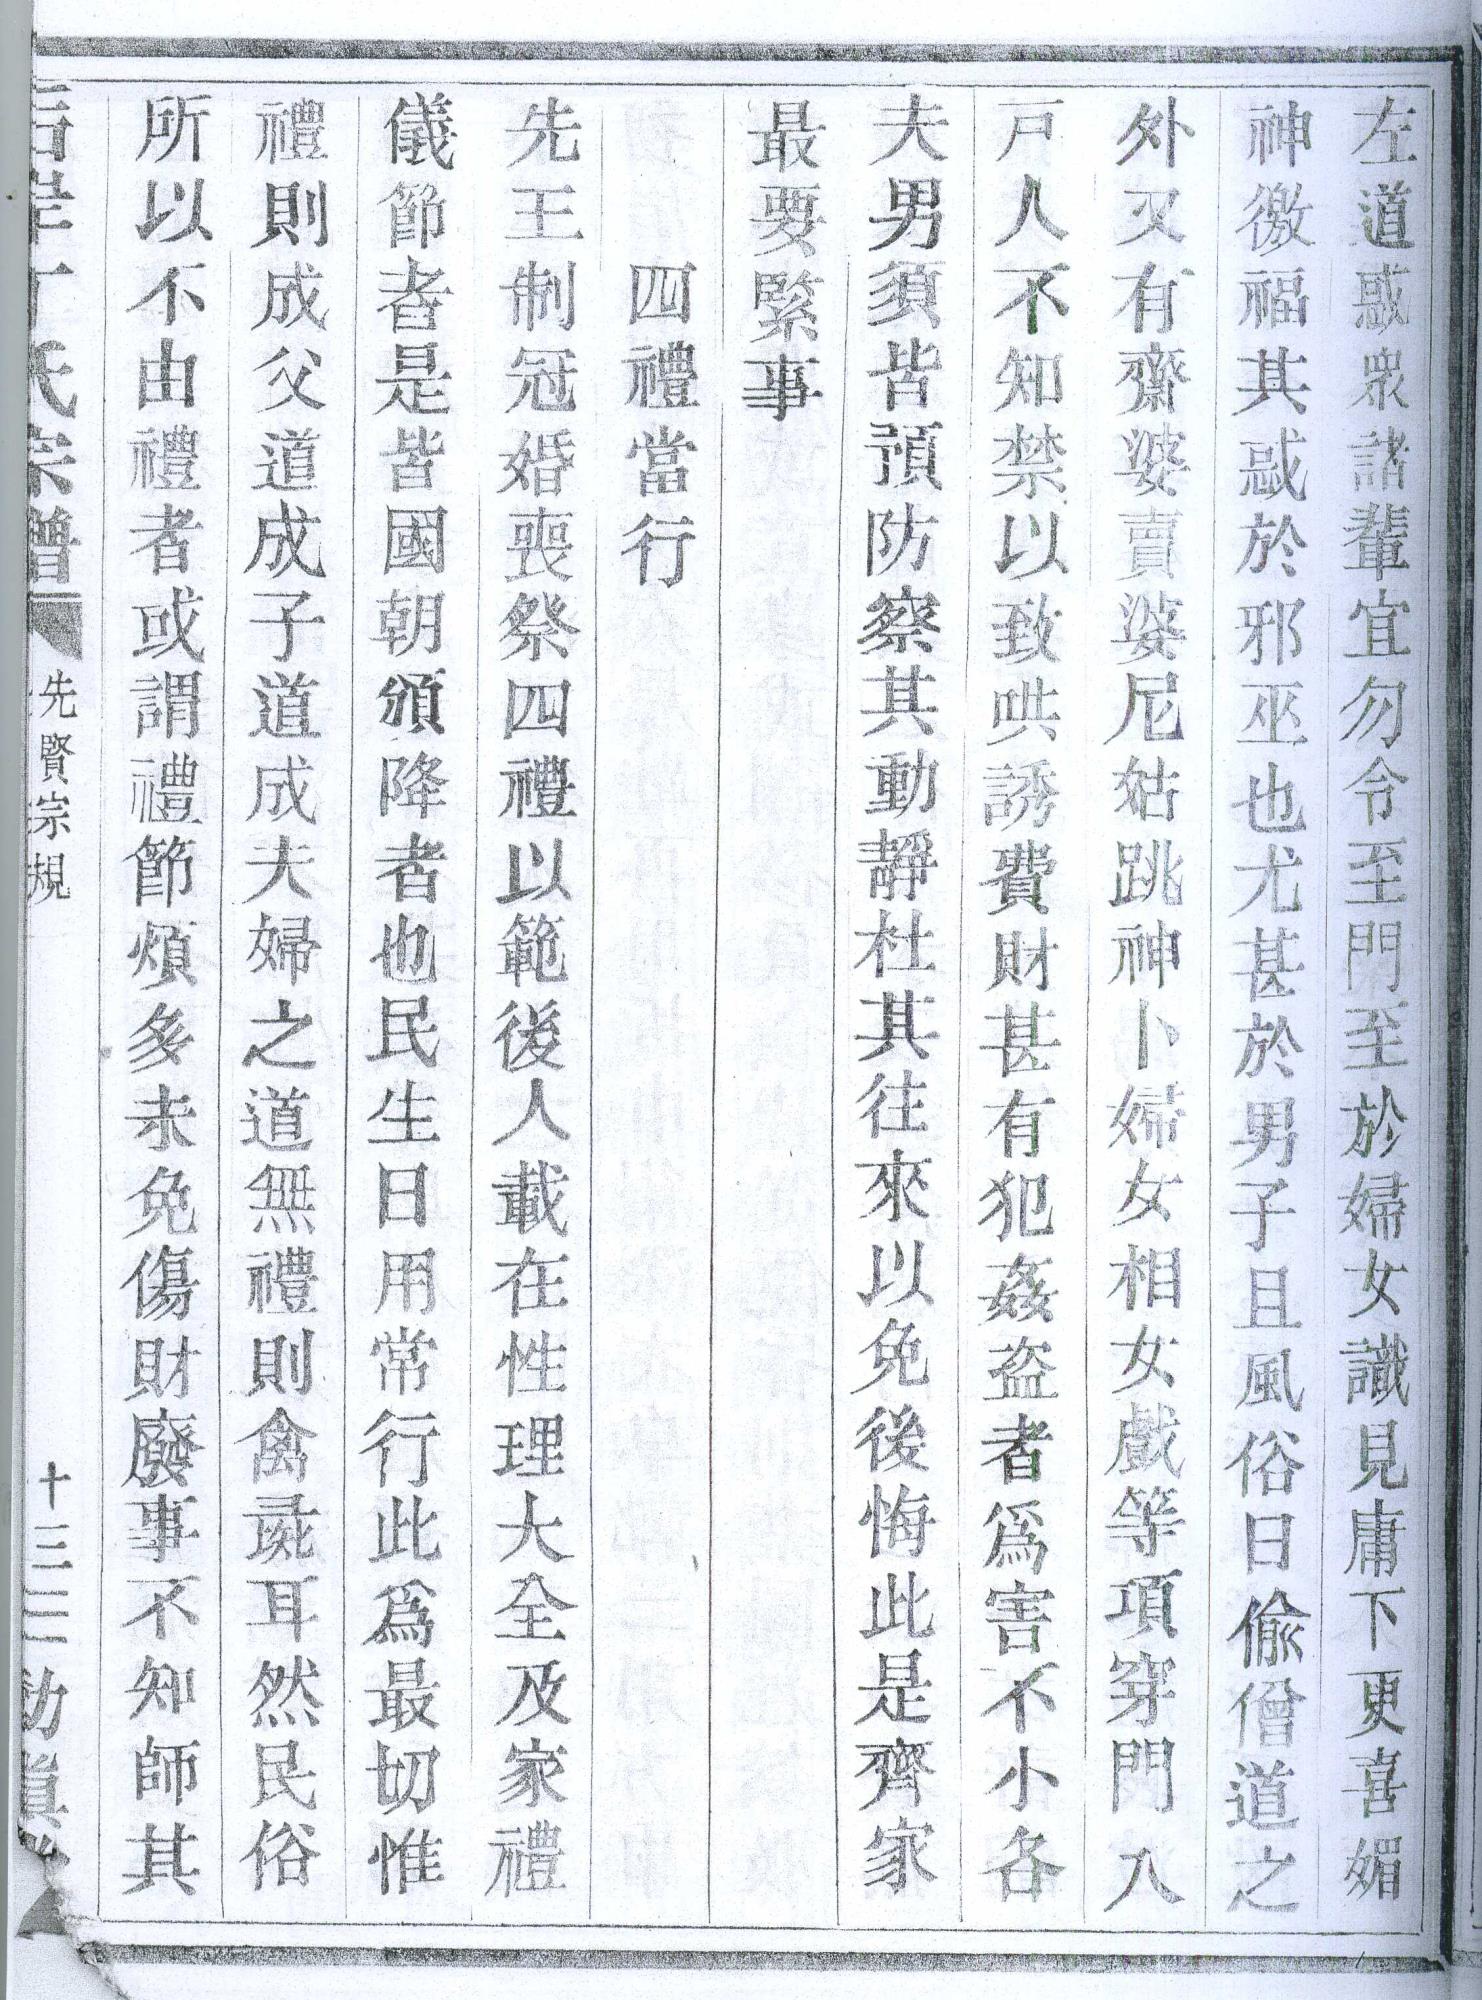 左道惑衆諸輩宜勿令至門至於婦女識見庸下更喜媚
神徼福其惑於邪巫也尤甚於男子且風俗日偷僧道之
外又有齋婆賣婆尼姑跳神卜婦女相女戲等項穿門入
戸人不知禁以致哄誘費財甚有犯姦盜者爲害不小各
夫男須皆預防察其動靜杜其往來以免後悔此是齊家
最要緊事
四禮當行
先王制冠婚喪祭四禮以範後人載在性理大全及家禮
儀節者是皆國朝頒降者也民生日用常行此爲最切惟
禮則成父道成子道成夫婦之道無禮則禽彘耳然民俗
所以不由禮者或謂禮節煩多未免傷財廢事不知師其
丁氏宗譜
先賢宗規
十三